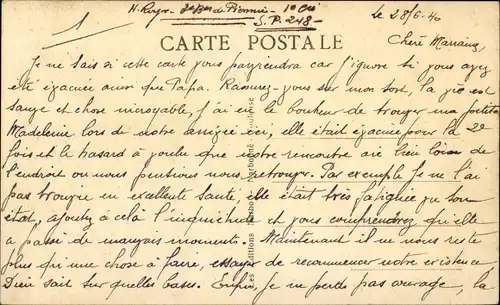 1
H. Royer - 3e Bon de Pionnié - 1e Cie
S.P. 248 -
le 28/6-40
CARTE POSTALE
Chère Marraine,
Je ne sais si cette carte vous parviendra car j'ignore si vous avez
été évacuée ainsi que Papa. Rassurez-vous sur mon sort, la vie est
sauve et chose incroyable, j'ai eu le bonheur de trouver ma petite
Madeleine lors de notre arrivée ici, elle était évacuée pour la 2e
fois et le hasard a voulu que notre rencontre ait lieu loin de
l'endroit où nous pensions nous retrouver. Par exemple je ne l'ai
pas trouvée en excellente santé, elle était très fatiguée vu son
état, ajoutez à cela l'inquiétude et vous comprendrez qu'elle
a passé de mauvais moments. Maintenant il ne nous reste
plus qu'une chose à faire, essayer de recommencer notre existence
Dieu sait sur quelles bases. Enfin, je ne perds pas courage, la